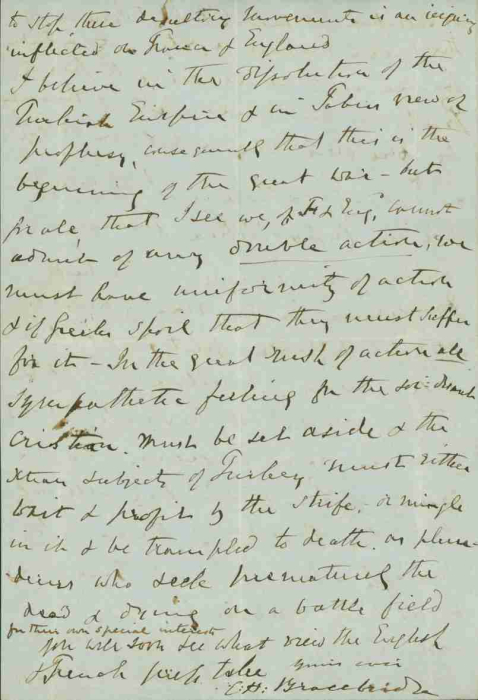 to stop these desultory movements is an injury
inflicted on France & England
I believe in the dissolution of the
Turkish Empire & in view of
prophesy, consequently that this is the
beginning of the great war – but
for all that I see we, of F & Eng, cannot
admit of any double action, we
must have uniformity of action
& if Greeks spoil that they must suffer
for it – In the great rush of action all
sympathetic feeling for the soi-disant
Cristian must be set aside & the
Xtian subjects of Turkey must either
wait & profit by the strife, or mingle
in it & be trampled to death, as plun-
derers who seek prematurely the
dead & dying on a battle field
for their own special interests
you will soon see what view the English
& French take
yours ever
C.H. Bracebridge